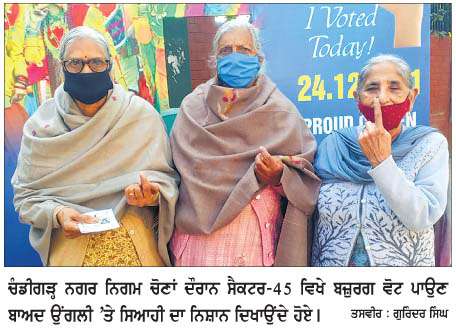 I Voted
Today!
24.12
1
PROUD
N
ਚੰਡੀਗੜ੍ਹ ਨਗਰ ਨਿਗਮ ਚੋਣਾਂ ਦੌਰਾਨ ਸੈਕਟਰ-45 ਵਿਖੇ ਬਜ਼ੁਰਗ ਵੋਟ ਪਾਉਣ
ਬਾਅਦ ਉਂਗਲੀ 'ਤੇ ਸਿਆਹੀ ਦਾ ਨਿਸ਼ਾਨ ਦਿਖਾਉਂਦੇ ਹੋਏ। ਤਸਵੀਰ : ਗੁਰਿੰਦਰ ਸਿੰਘ